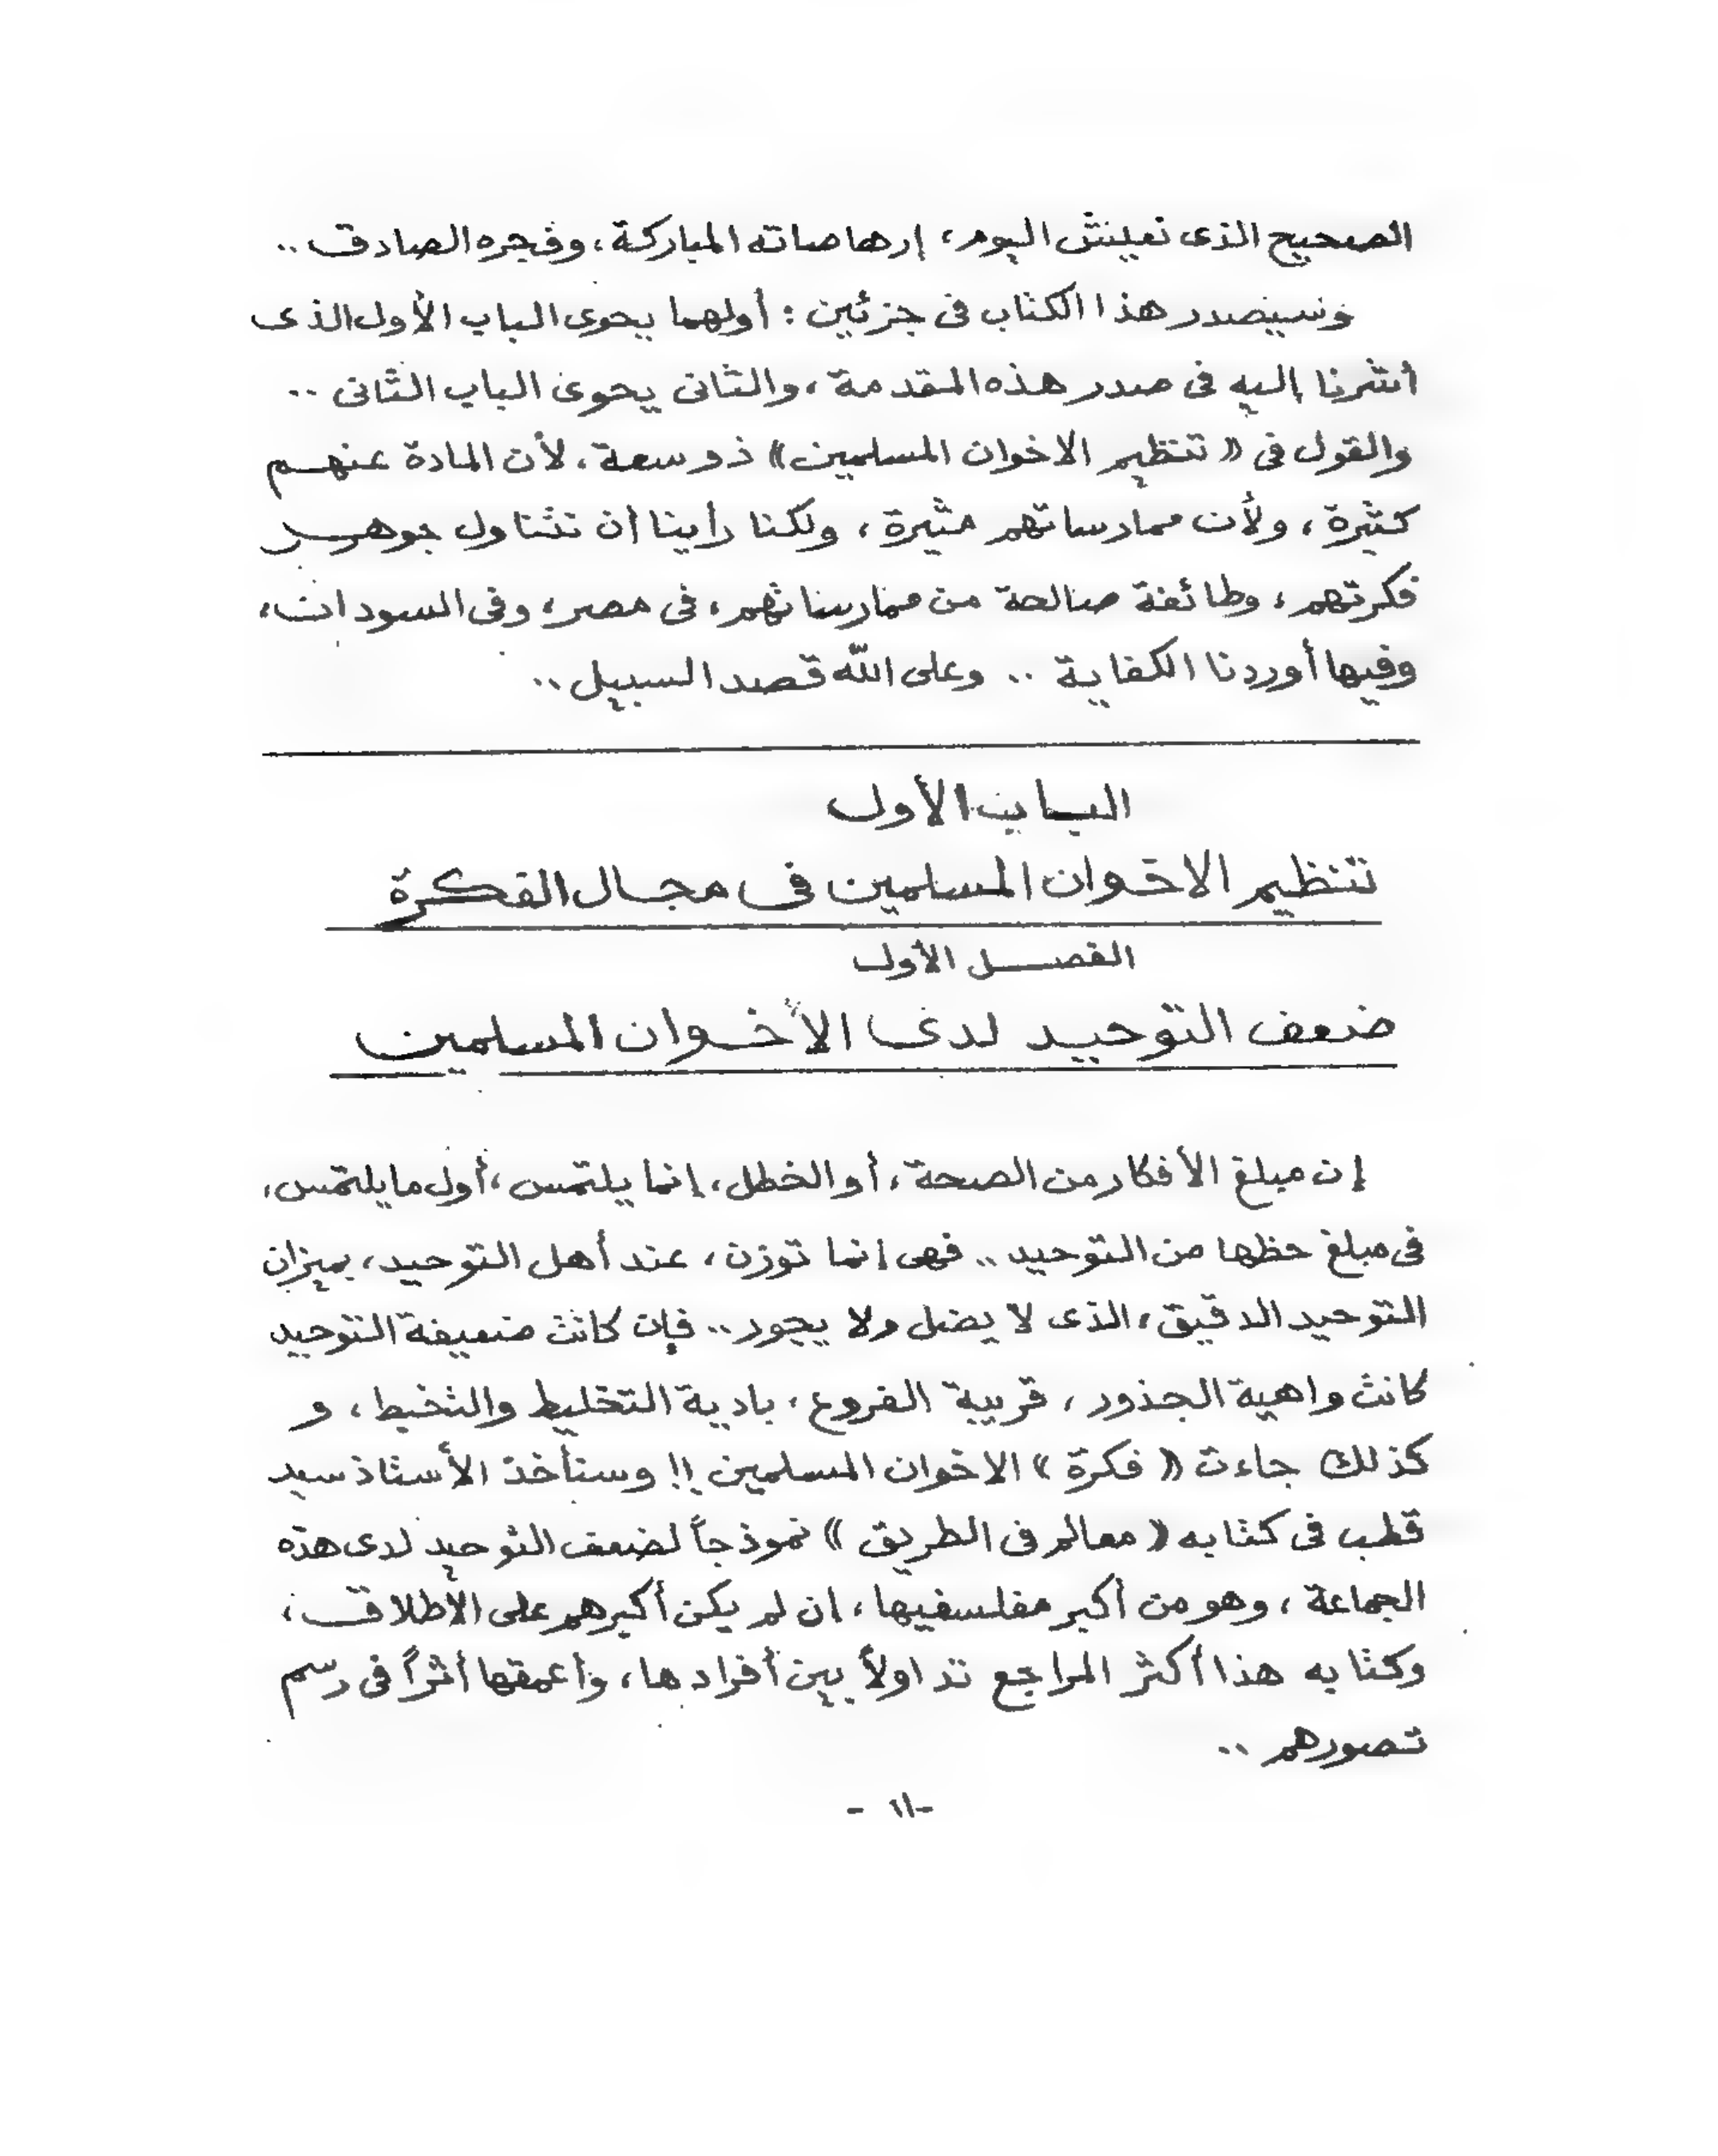 الصحيح الذى نعيش اليوم، إرهاصاته المباركة، وفجره الصادق ..
وسيصدر هذا الكتاب فى جزئين : أولهما يحوى الباب الأول الذى
أشرنا إليه فى صدر هذه المقدمة ، والثانى يحوى الباب الثانى ..
والقول فى « تنظيم الاخوان المسلمين» ذو سعة ، لأن المادة عنهم
كثيرة ، ولأن ممارساتهم مثيرة ، ولكنا رأينا أن نتناول جوهر
فكرتهم ، وطائفة صالحة من ممارساتهم ، فى مصر ، وفى السودان ،
وفيها أوردنا الكفاية .. وعلى الله قصد السبيل ..
الباب الأول
تنظيم الاخوان المسلمين فى مجال الفكرة
الفصل الأول
ضعف التوحيد لدى الأخوان المسلمين
إن مبلغ الأفكار من الصحة ، أو الخطل ، إنما يلتمس ، أول ما يلتمس ،
فى مبلغ حظها من التوحيد .. فهى انما توزن ، عند أهل التوحيد ، بميزان
التوحيد الدقيق ، الذى لا يضل ولا يجور .. فإن كانت ضعيفة التوحيد
كانت واهية الجذور ، قريبة الفروع ، بادية التخليط والتخبط ، و
كذلك جاءت « فكرة » الاخوان المسلمين !! وسنأخذ الأستاذ سيد
قطب فى كتابه « معالم فى الطريق » نموذجاً لضعف التوحيد لدى هذه
الجماعة ، وهو من أكبر مفلسفيها ، ان لم يكن أكبرهم على الاطلاق ،
وكتابه هذا أكثر المراجع تداولاً بين أفرادها ، وأعمقها أثراً فى رسم
تصورهم ..
- ١١ -